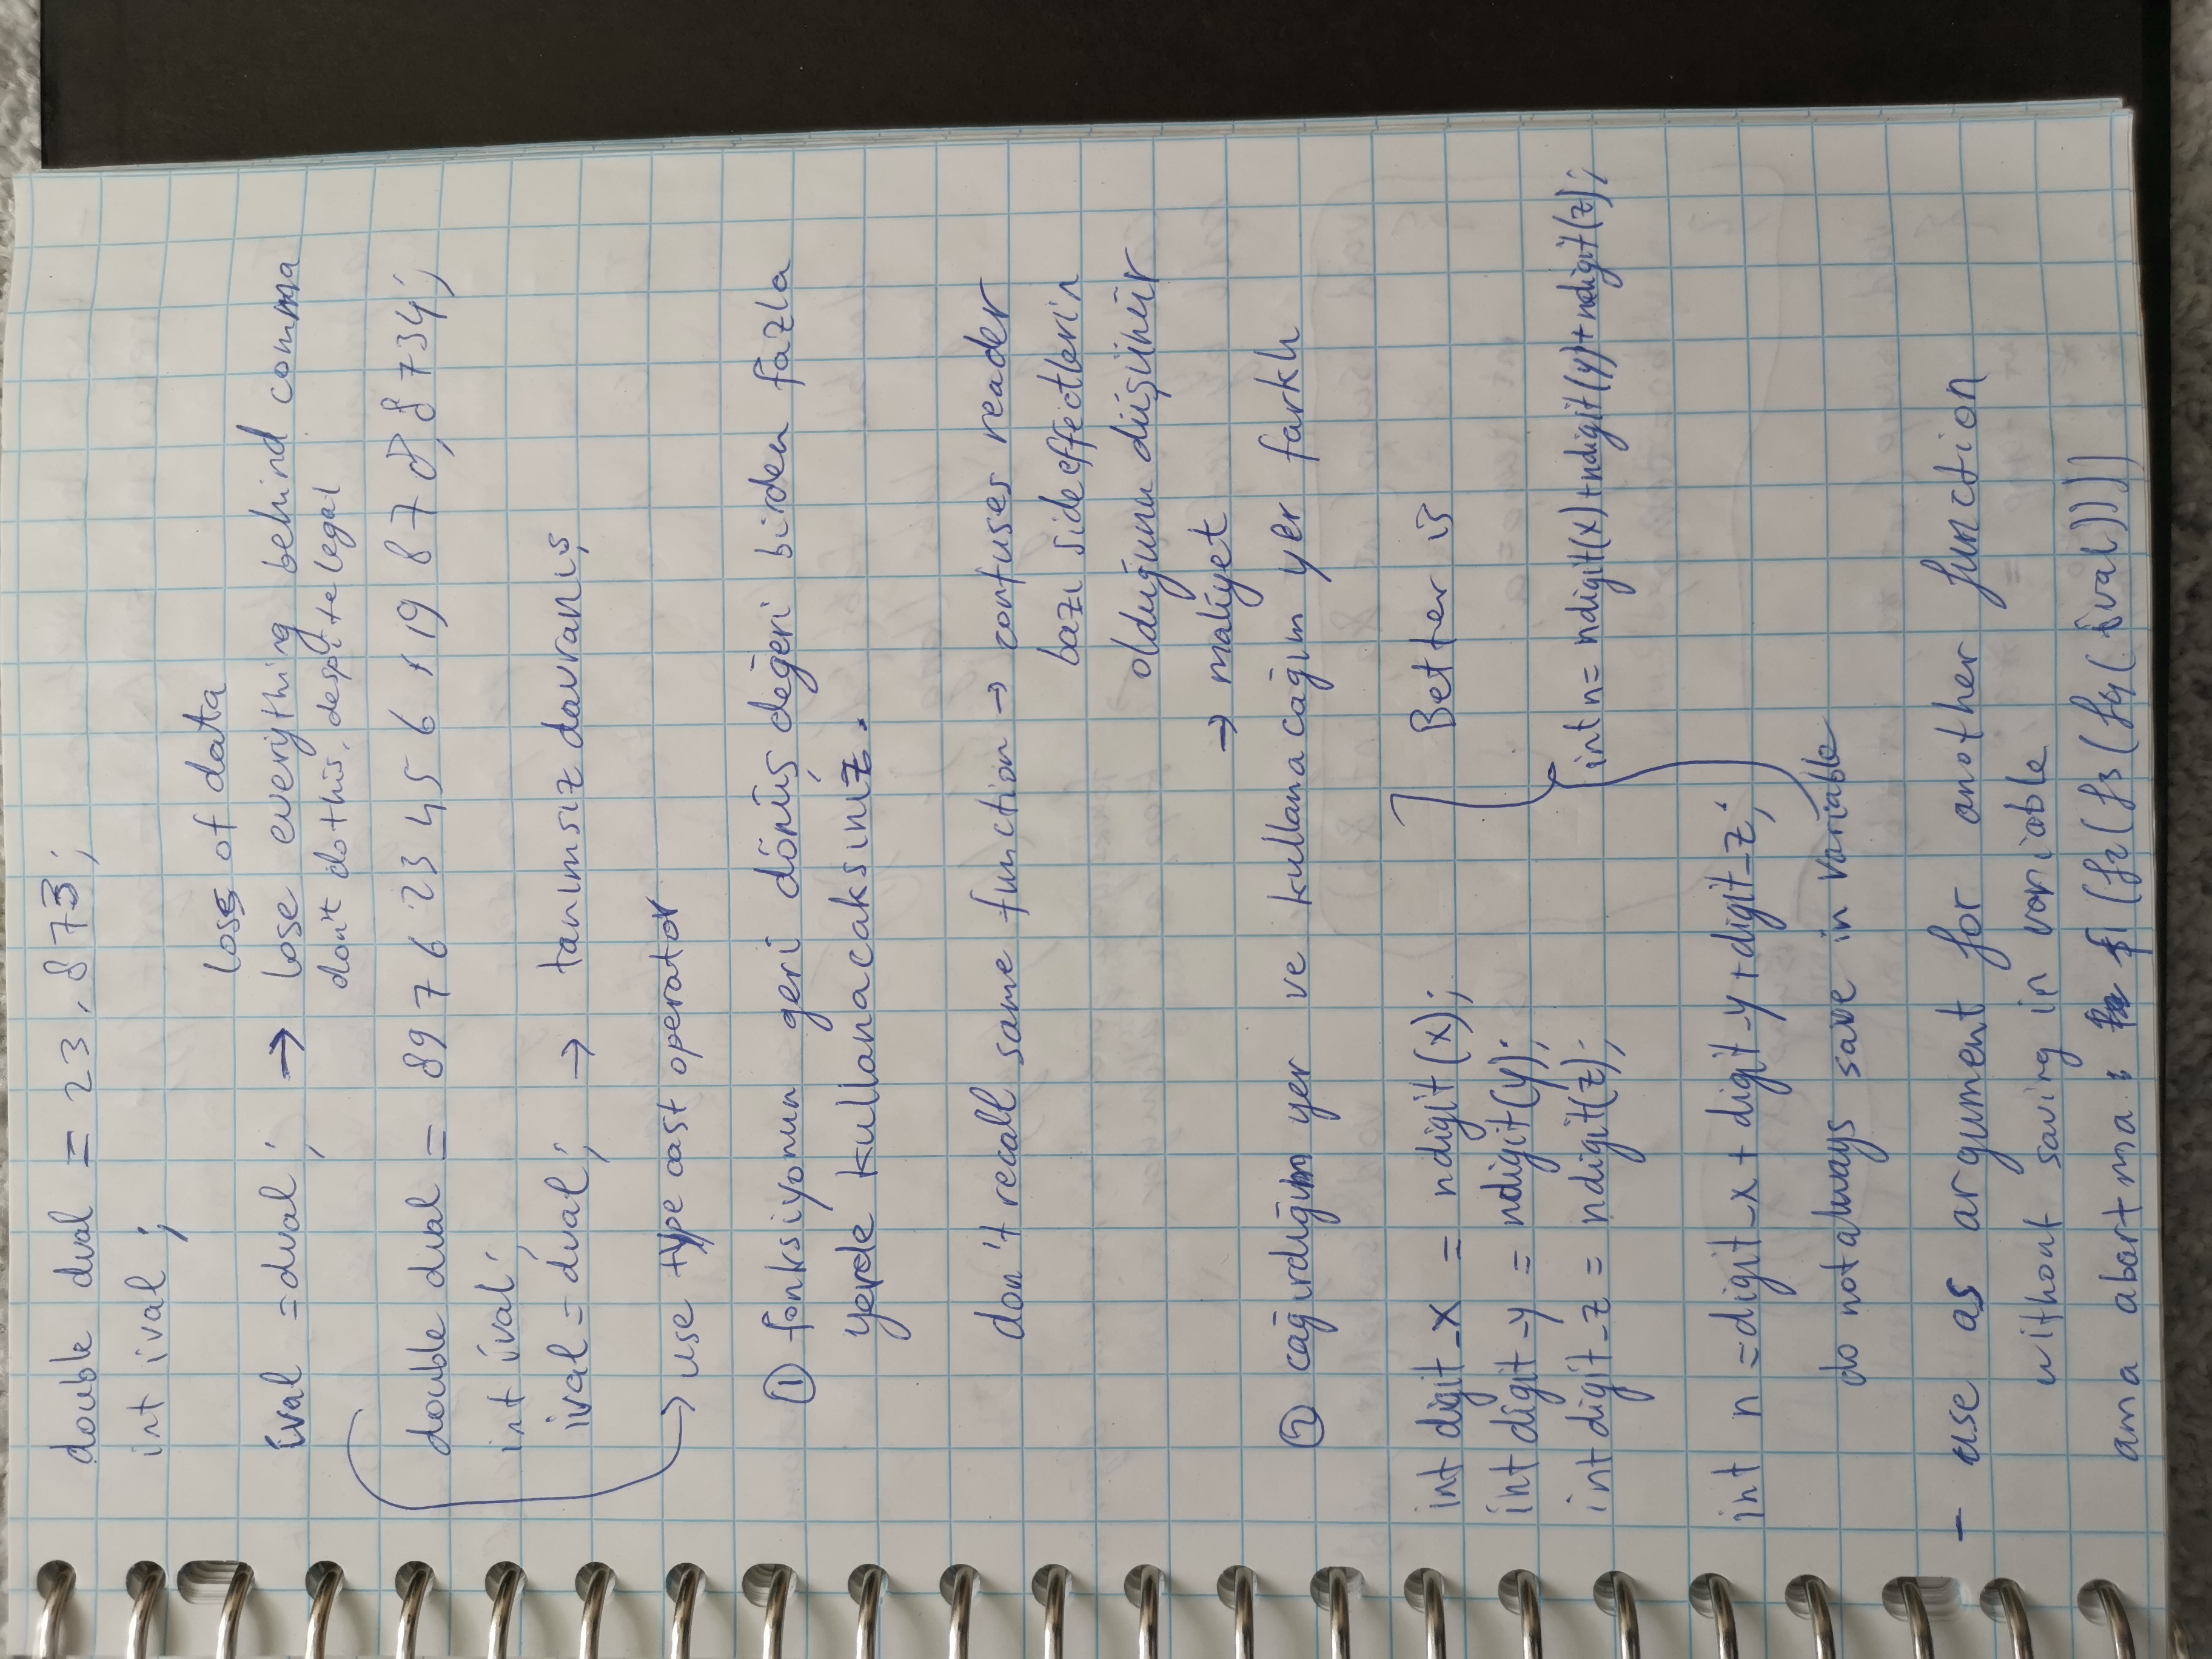 double dval = 23.873;
int ival;
loss of data
ival = dval; → lose everything behind comma
don't do this, despite legal
double dval = 8976 23 456 119 878,8734;
int ival;
ival = dval; → tanımsız davranış
→ use type cast operator
① fonksiyonun geri dönüş değeri birden fazla
yerde kullanacaksınız.
don't recall same function → confuses reader
bazı sideeffectlerin
olduğunu düşünür
→ maliyet
② cağırdığım yer ve kullanacağım yer farklı
int digit_x = ndigit(x);
Better is
int digit_y = ndigit(y);
int digit_z = ndigit(z);
int n= ndigit(x)+ndigit(y)+ndigit(z);
int n = digit_x + digit_y + digit_z;
do not always save in variable
- use as argument for another function
without saving in variable
ama abartma: f1(f2(f3(f4(ival))))